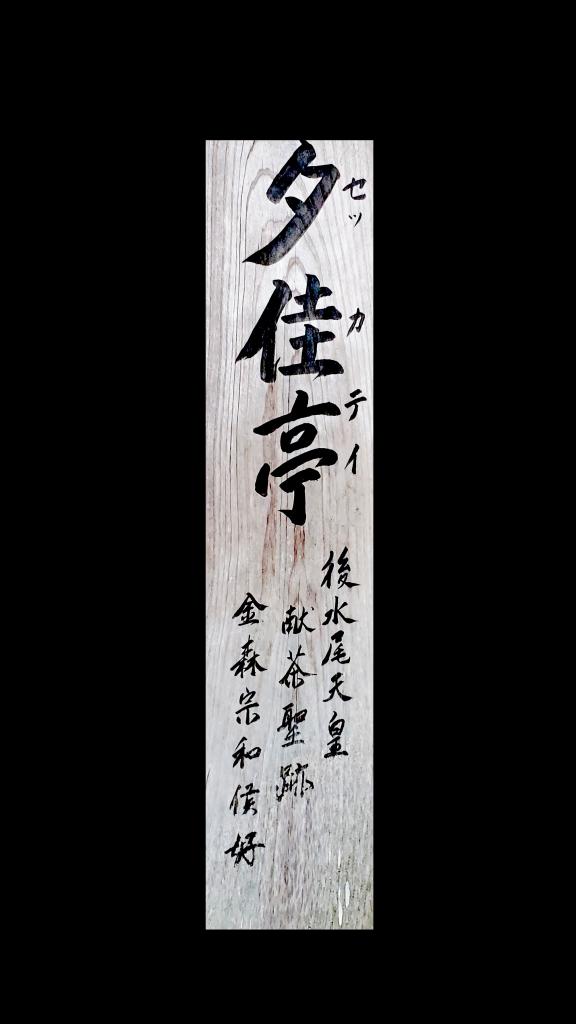 夕佳亭
セッカテイ
後水尾天皇
献茶聖跡
金森宗和侯好